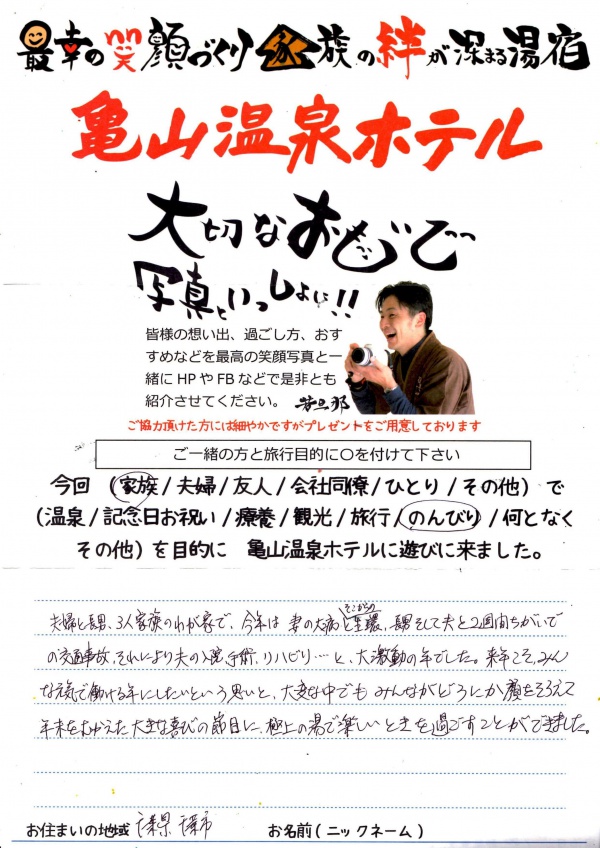 最幸の笑顔づくり 家族の絆が深まる湯宿
亀山温泉ホテル
大切なおもいで
写真といっしょに!!
皆様の想い出、過ごし方、おす
すめなどを最高の笑顔写真と一
緒に HP や FB などで是非とも
紹介させてください。 若旦那
ご協力頂けた方には細やかですがプレゼントをご用意しております
ご一緒の方と旅行目的に〇を付けて下さい
今回(家族/夫婦/友人/会社同僚/ひとり/その他)で
(温泉/記念日お祝い/療養/観光/旅行/のんびり/何となく
その他)を目的に 亀山温泉ホテルに遊びに来ました。
そこからの
夫婦と長男、3人家族のわが家で、今年は 妻の大病と生還、長男そして夫と2週間ちがいで
の交通事故、それにより夫の入院、手術、リハビリ…と、大激動の年でした。来年こそ、みん
な元気で働ける年にしたいという思いと、大変な中でも みんながどうにか顔をそろえて
年末をむかえた大きな喜びの節目に、極上の湯で楽しいときを過ごすことができました。
お住まいの地域 千葉県 千葉市 お名前(ニックネーム)